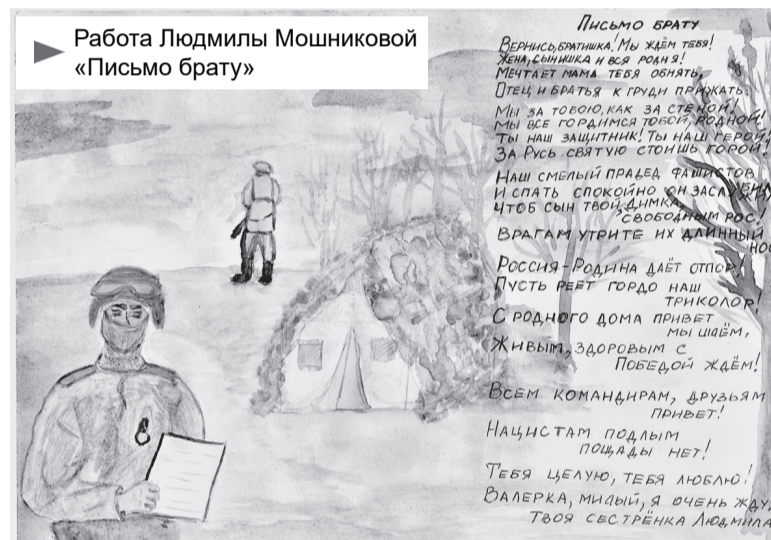 Работа Людмилы Мошниковой
«Письмо брату»
Письмо брату
Вернись, братишка! Мы ждём тебя!
Жена, сынишка и вся родня!
Мечтает мама тебя обнять,
Отец и братья к груди прижать.
Мы за тобою, как за стеной!
Мы все гордимся тобой, родной!
Ты наш защитник! Ты наш герой!
За Русь святую стоишь горой!
Наш смелый прадед фашистов
И спать спокойно он заслужил
Чтоб сын твой, Димка,
свободным рос!
Врагам утрите их длинный
нос
Россия-Родина даёт отпор,
Пусть реет гордо наш
триколор!
С родного дома привет
мы шлём,
Живым, здоровым с
Победой ждём!
Всем командирам, друзьям
привет!
Нацистам подлым
пощады нет!
Тебя целую, тебя люблю!
Валерка, милый, я очень жду,
Твоя сестрёнка Людмила